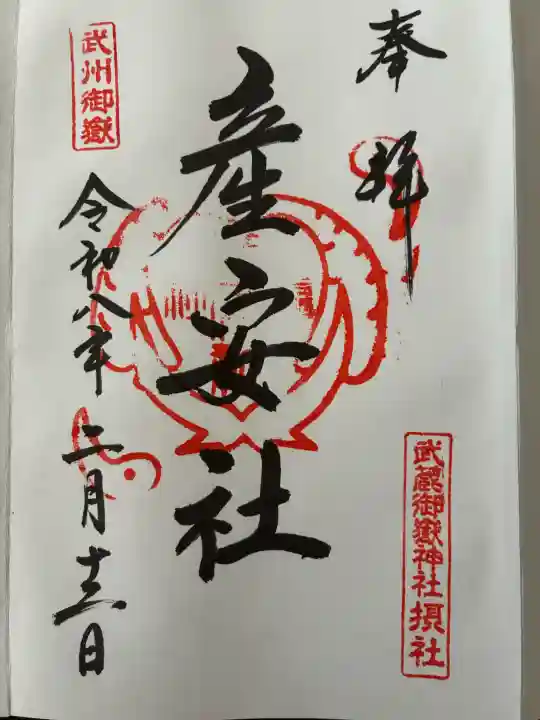 奉拝
武蔵御嶽神社摂社
産安社
武州御嶽
令和八年二月十二日